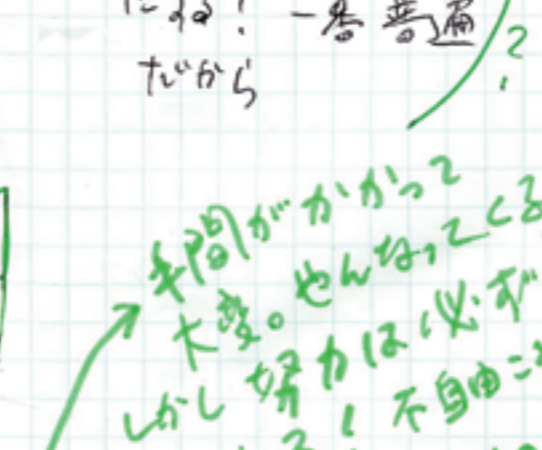 だね! 一番普通
だから
?
手間がかかって
大変。やんなってくる
しかし努力は必ず
る! 不自由こ